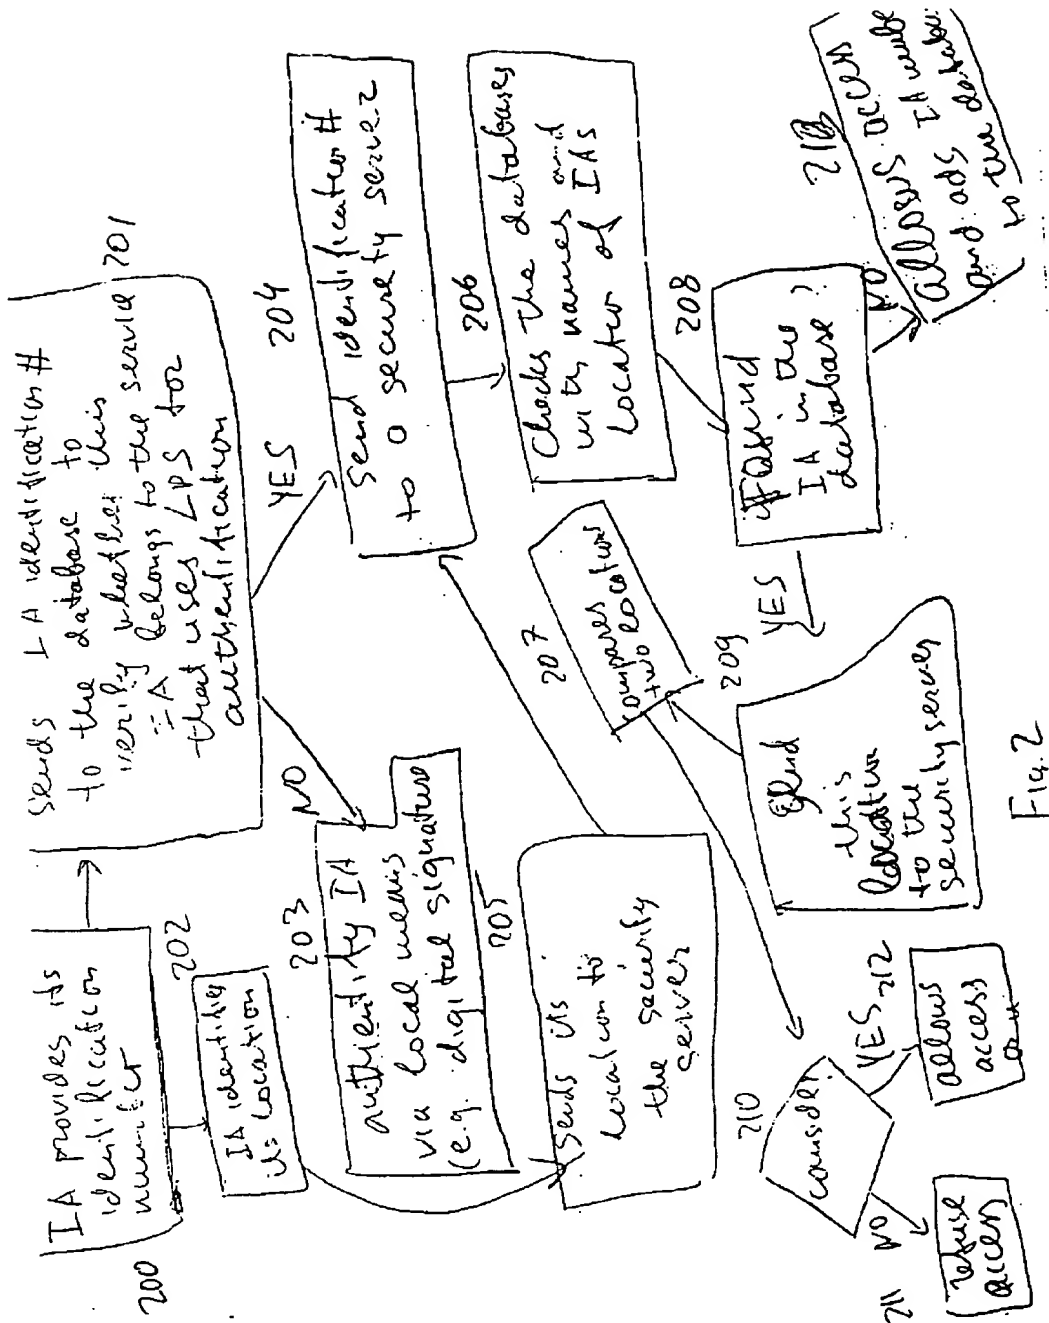 200
IA provides its
identification
number
201
Sends IA identification #
to the database to
verify whether this
IA belongs to the service
that uses LPS for
authentification
202
IA identifies
its location
203
NO
authentify IA
via local means
(e.g. digital signature)
YES
204
Send identification #
to a security server
205
Sends its
location to
the security
server
206
Checks the databases
with names and
locator of IAs
207
compares
two location
208
Found
IA in the
database?
YES
209
this
location
to the
security server
210
211
NO
refuse
access
YES
212
allows
access
NO
allows access
and ads IA
to the
Fig. 2